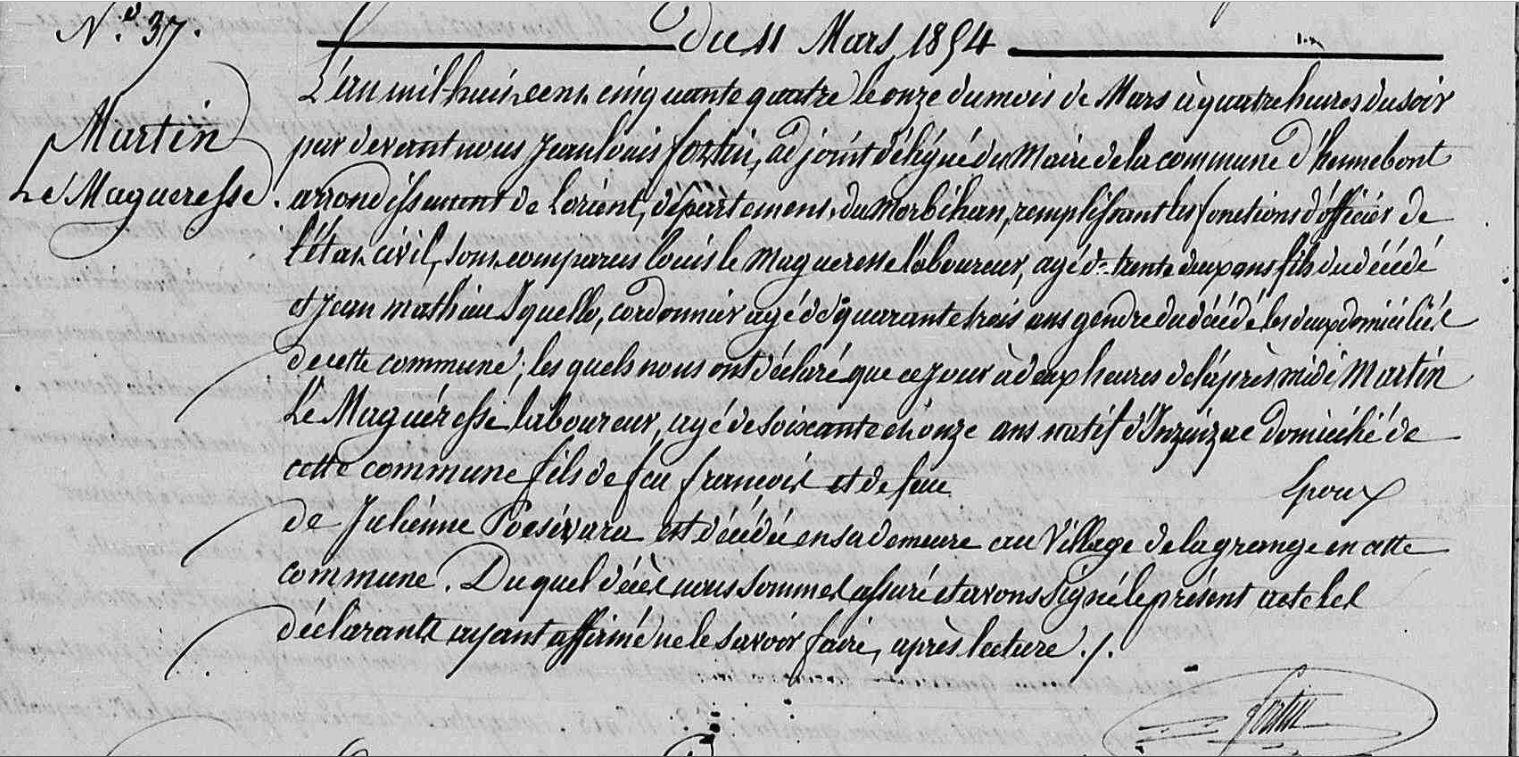 N.º 37.
Du 11 Mars 1854
Martin
Le Magueresse.
L'an mil huit cent cinquante quatre le onze du mois de Mars à quatre heures du soir
par devant nous Jean louis fortin, adjoint délégué du Maire de la commune d'hennebont
arrondissement de Lorient, département du Morbihan, remplissant les fonctions d'officier de
l'état civil, sont comparus louis le Magueresse laboureur, agé de trente deux ans fils du décédé
et Jean mathieu Squello, cordonnier agé de quarante trois ans gendre du décédé les deux domiciliés
de cette commune; les quels nous ont déclaré que ce jour à deux heures de l'après midi Martin
Le Maguéresse laboureur, agé de soixante et onze ans natif d'Inzinzac domicilié de
cette commune fils de feu francois et de feue Epoux
de Julienne Poesivara est décédé en sa demeure au Village de la grange en cette
commune. Du quel décès nous sommes assuré et avons signé le présent acte les
déclarants ayant affirmé ne le savoir faire, après lecture ./.
Fortin